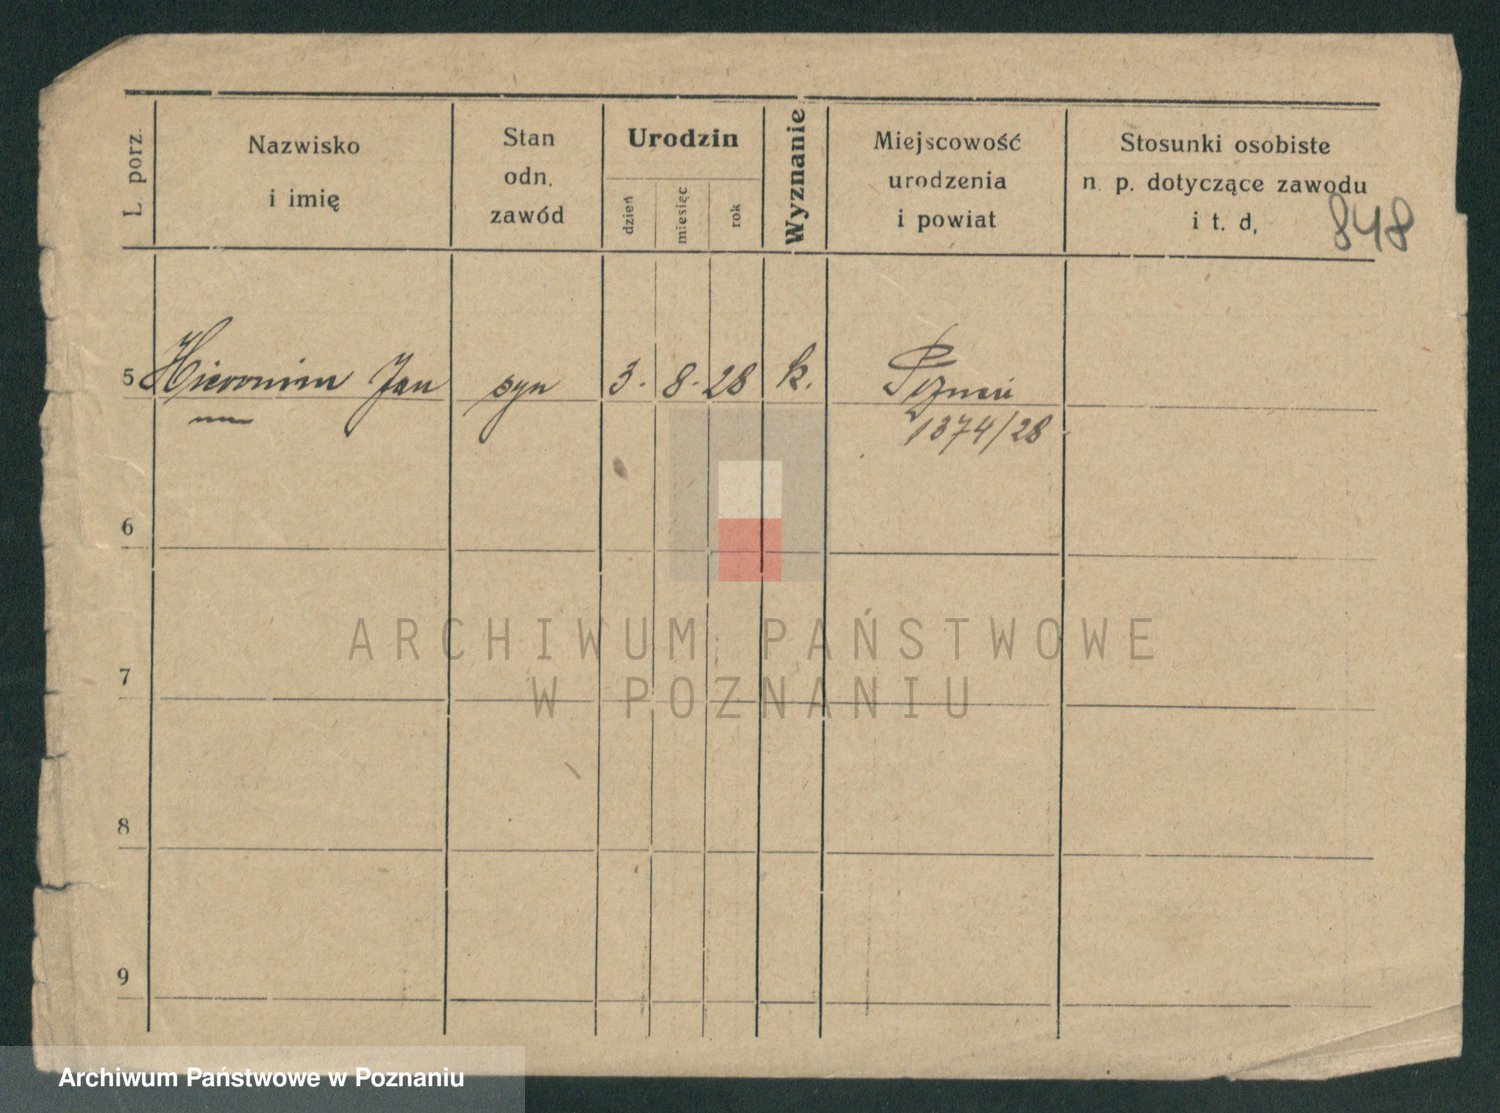 L. porz.
Nazwisko
i imię
Stan
odn.
zawód
Urodzin
dzień
miesiąc
rok
Wyznanie
Miejscowość
urodzenia
i powiat
Stosunki osobiste
n. p. dotyczące zawodu
i t. d.
848
5 Hieronim Jan syn 3. 8. 28 k. Poznań
1374/28
6
7
8
9
ARCHIWUM PAŃSTWOWE
W POZNANIU
Archiwum Państwowe w Poznaniu